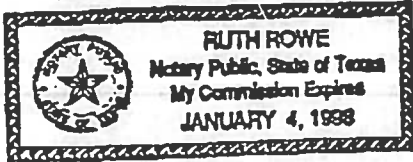 RUTH ROWE
Notary Public, State of Texas
My Commission Expires
JANUARY 4, 1998